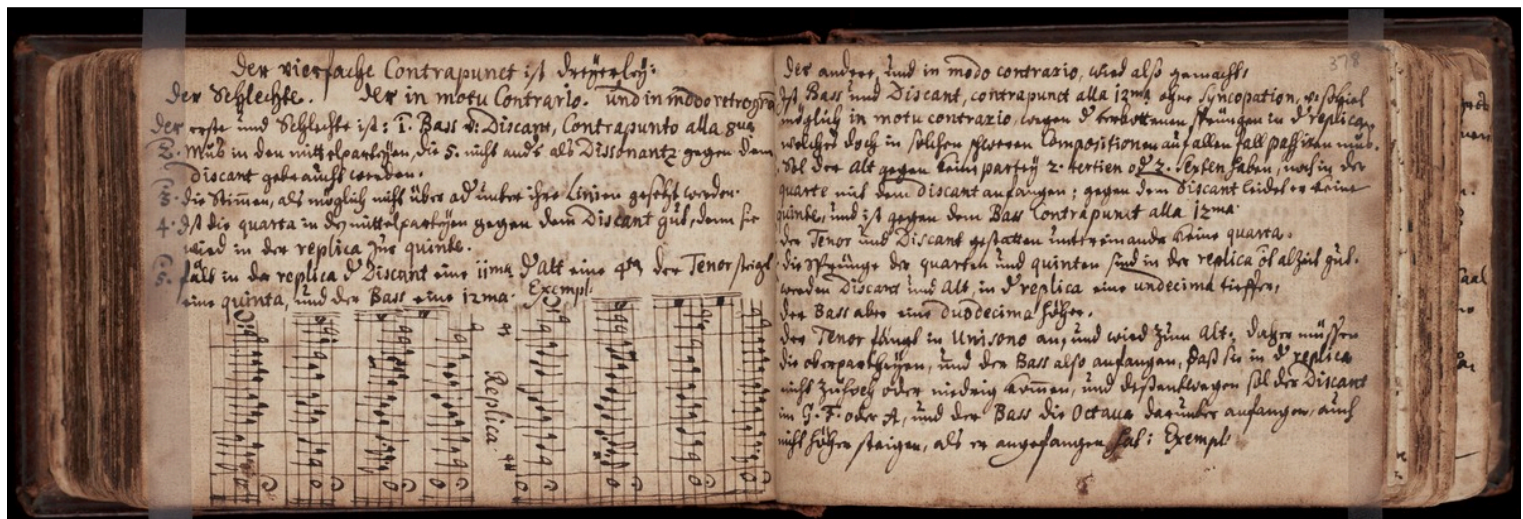 Der vierfache Contrapunct ist dreyerley:
Der Schlechte. Der in motu Contrario. und in modo retrogra
Der erste und Schlechte ist: 1. Bass v. Discant, Contrapunto alla 8va
2. Muß in den mittelpartheyen, die 5. nicht anders als Dissonantz gegen dem
Discant gebraucht werden.
3. die Stimen, als möglich nicht über od unter ihre Linien gesetzt werden.
4. Ist die quarta in den mittelpartheyen gegen dem Discant gut, denn sie
wird in der replica zur quinte.
5. fält in der replica d Discant eine 11ma d Alt eine 4ta der Tenor steigt
eine quinta, und der Bass eine 12ma. Exempl:
Replica.
378
Der andere, und in modo contrario, wird also gemacht:
Ist Bass und Discant, contrapunct alla 12ma ohne Syncopation, so viel
möglich in motu contrario, wegen d verbottenen sprüngen in d replica,
welches doch in solchen schweren Compositionen auf allen fall passiren muß.
Sol der Alt gegen keine partey 2. tertien od 2. sexten haben, noch in der
quarte mit dem Discant anfangen; gegen dem Discant leidet er keine
quinte, und ist gegen dem Bass Contrapunct alla 12ma.
der Tenor und Discant gestatten untereinander keine quarta.
die Sprünge der quarten und quinten sind in der replica alzeit gut.
werden Discant und Alt, in d replica eine undecima tieffer,
der Bass aber eine duodecima höher.
der Tenor fängt in Unisono an, und wird zum Alt; daher müssen
die oberpartheyen, und der Bass also anfangen, daß sie in d replica
nicht zu hoch oder niedrig kommen, und deßentwegen sol der Discant
im G. F. oder A, und der Bass die Octava darunter anfangen, auch
nicht höher steigen, als er angefangen hat: Exempl: